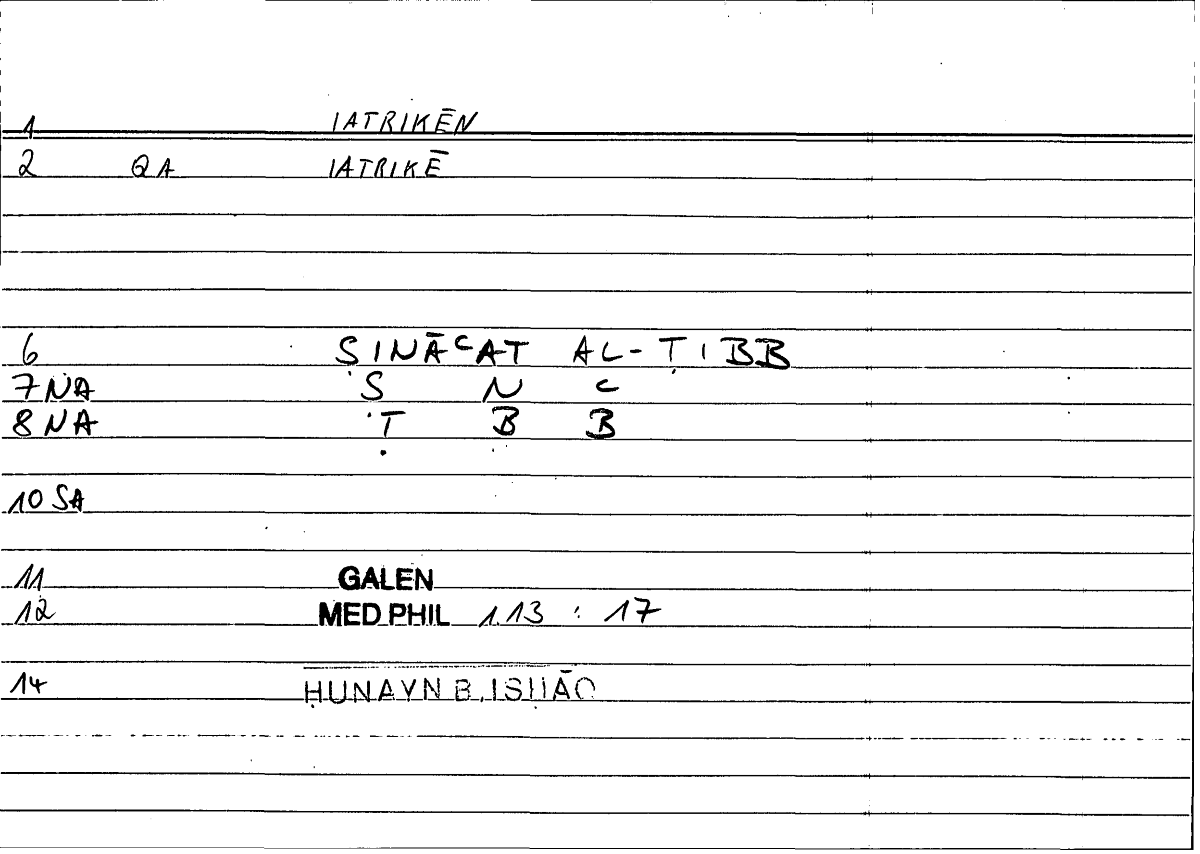 1 IATRIKĒN
2 QA IATRIKĒ
6 ṢINĀʿAT AL-ṬIBB
7 NA Ṣ N ʿ
8 NA Ṭ B B
10 SA
11 GALEN
12 MED PHIL 1.13 : 17
14 ḤUNAYN B. ISḤĀQ